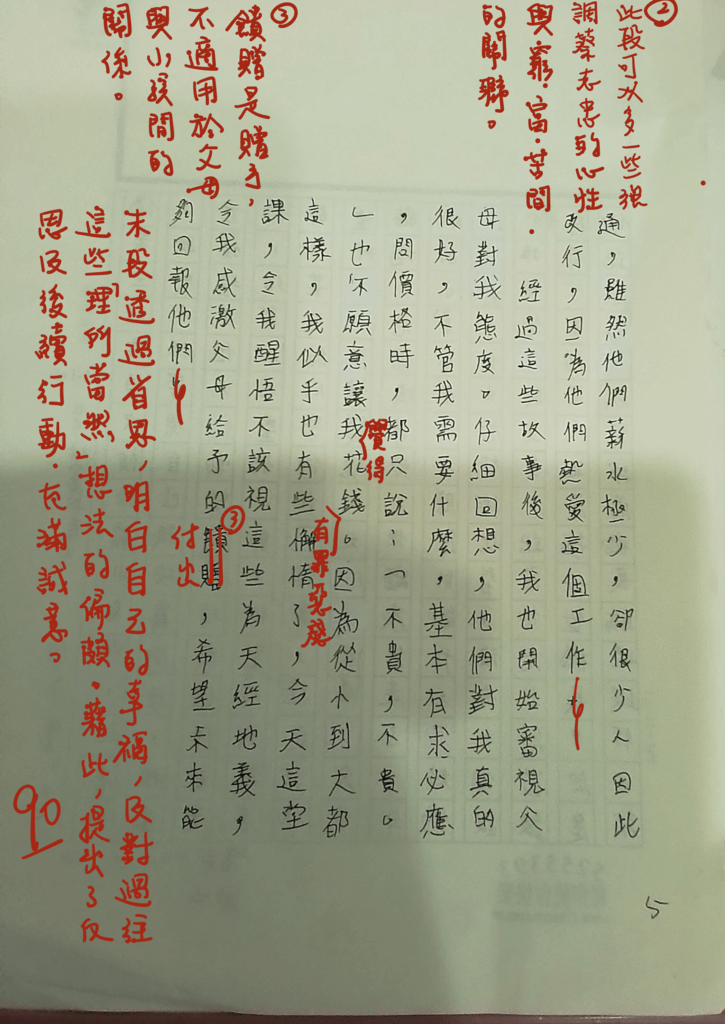 ②
此段可以多一些強
調蔡志忠的心性
與窮.富.苦間.
的關聯。
③
饋贈是贈予，
不適用於父母
與小孩間的
關係。
通，雖然他們薪水極少，卻很少人因此
改行，因為他們熱愛這個工作。
經過這些故事後，我也開始審視父
母對我態度。仔細回想，他們對我真的
很好，不管我需要什麼，基本有求必應
，問價格時，都只說：「不貴，不貴。
」也不願意讓我花錢。因為從小到大都
覺得
有罪惡感
這樣，我似乎也有些懶惰了，今天這堂
課，令我醒悟不該視這些為天經地義，
令我感激父母給予的饋贈，希望未來能
③
付出
夠回報他們。
末段透過省思，明白自己的幸福，及對過往
這些「理所當然」想法的偏頗.藉此，提出了反
思及後續行動.充滿誠意。
90
5